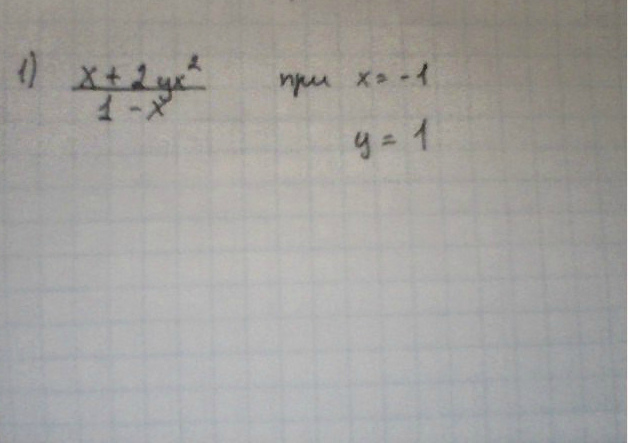 1) (x + 2yx²)/(1 - x) при x = -1
y = 1